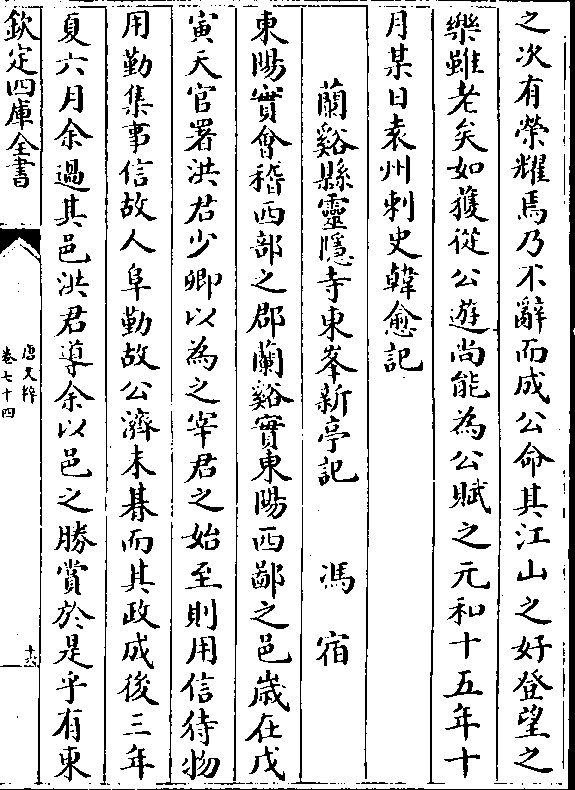 之次有榮耀焉乃不辭而成公命其江山之好登望之
樂雖老矣如獲從公遊尚能為公賦之元和十五年十
月某日袁州刺史韓愈記
蘭谿縣靈隱寺東峯新亭記 馮宿
東陽實會稽西部之郡蘭谿實東陽西鄙之邑歲在戊
寅天官署洪君少卿以為之宰君之始至則用信待物
用勤集事信故人阜勤故公濟未朞而其政成後三年
夏六月余過其邑洪君導余以邑之勝賞於是乎有東
欽定四庫全書
唐文粹
卷七十四
十六